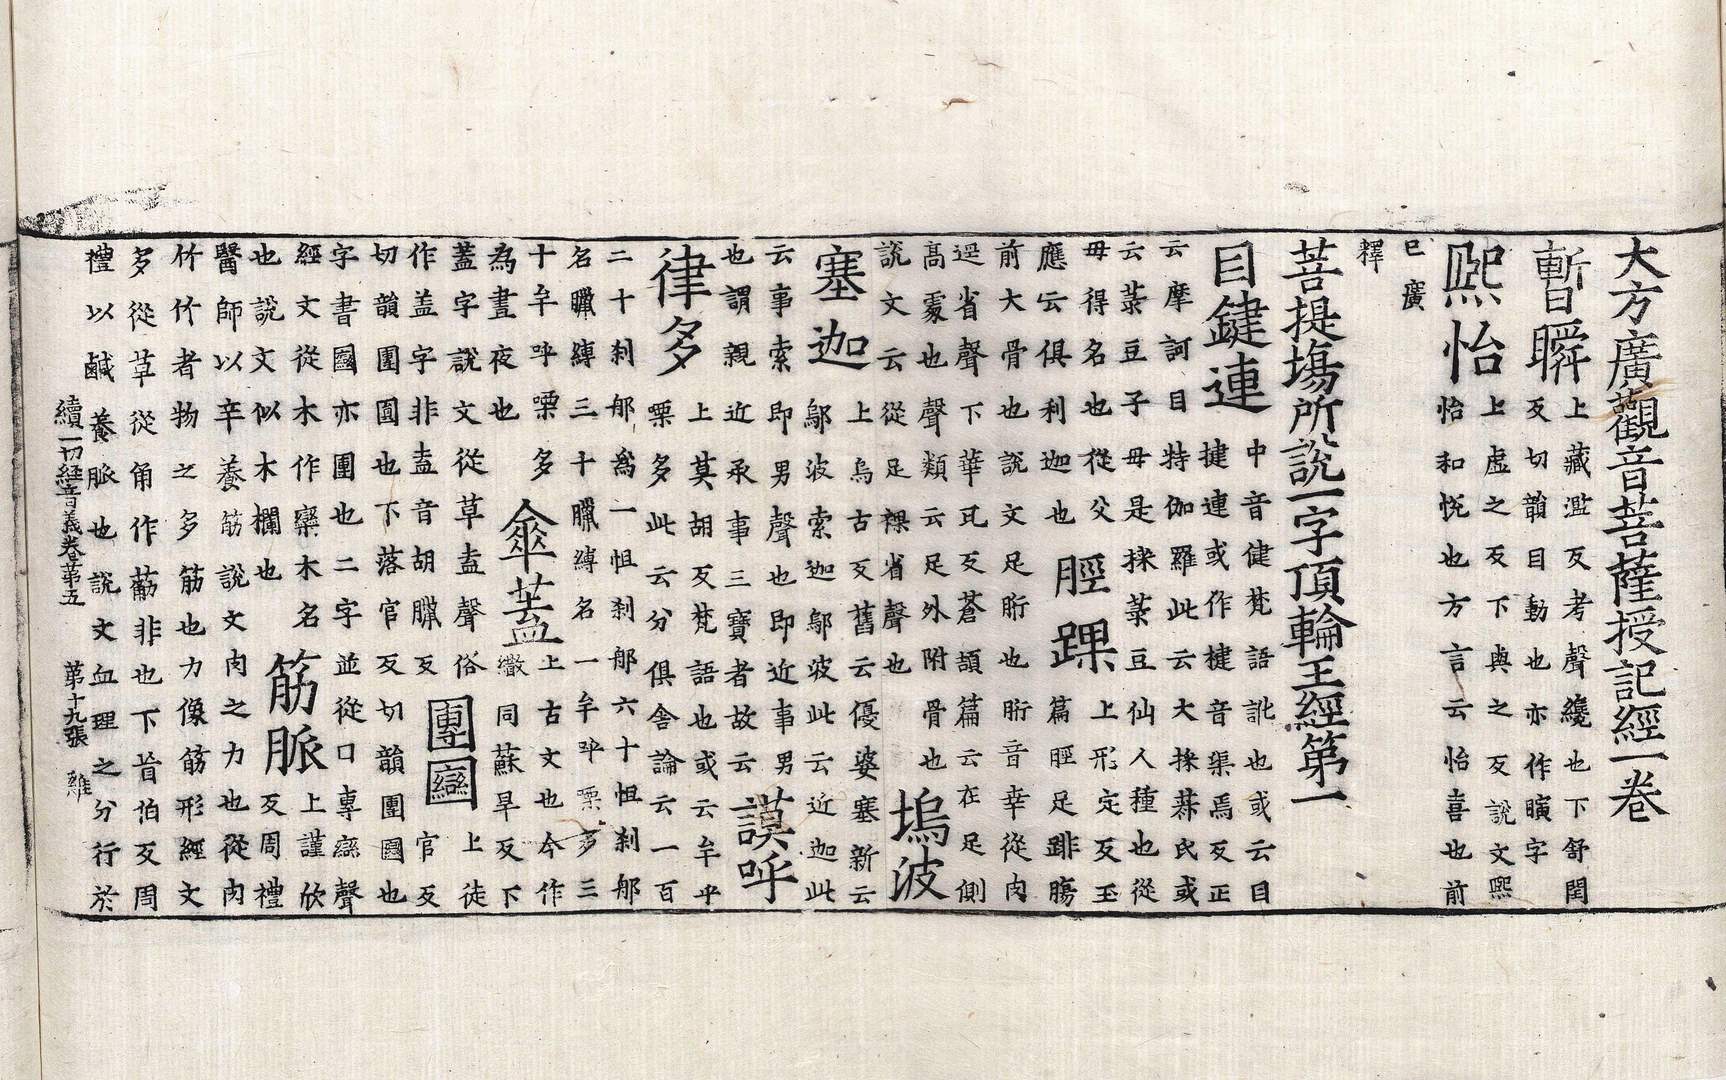 大方廣觀音菩薩授記經一卷
暫瞬上藏濫反考聲纔也下舒閏
反切韻目動也亦作瞚字
熙怡上虛之反下與之反說文熙
怡和悅也方言云怡喜也前
已廣
釋
菩提場所說一字頂輪王經第一
目鍵連中音健梵語訛也或云目
揵連或作揵音渠焉反正
云摩訶目特伽羅此云大採菽氏或
云菉豆子毋是採菉豆仙人種也從
毋得名也從父
應云俱利迦也
脛踝上形定反玉
篇脛足跰腸
前大骨也說文足䯒也䯒音幸從肉
逕省聲下華瓦反蒼頡篇云在足側
高處也聲類云足外附骨也
說文云從足裸省聲也
塢波
塞迦上烏古反舊云優婆塞新云
鄔波索迦鄔波此云近迦此
云事索即男聲也即近事男
也謂親近承事三寶者故云
謨呼
律多上莫胡反梵語也或云牟乎
栗多此云分俱舍論云一百
二十剎那為一怛剎那六十怛剎那
名臘縛三十臘縛名一牟呼栗多三
十牟呼㗚多
為晝夜也
傘蓋上古文也今作
繖同蘇旱反下
蓋字說文從草盍聲俗
作盖字非盍音胡臘反
團圞上徒
官反
切韻團圓也下落官反切韻團圞也
字書圞亦團也二字並從口專欒聲
經文從木作欒木名
也說文似木欄也
筋脈上謹欣
反周禮
醫師以辛養筋說文肉之力也從肉
竹竹者物之多筋也力像筋形經文
多從草從角作葋非也下音伯反周
禮以鹹養脈也說文血理之分行於
續一切經音義卷第五 第十九張 雞